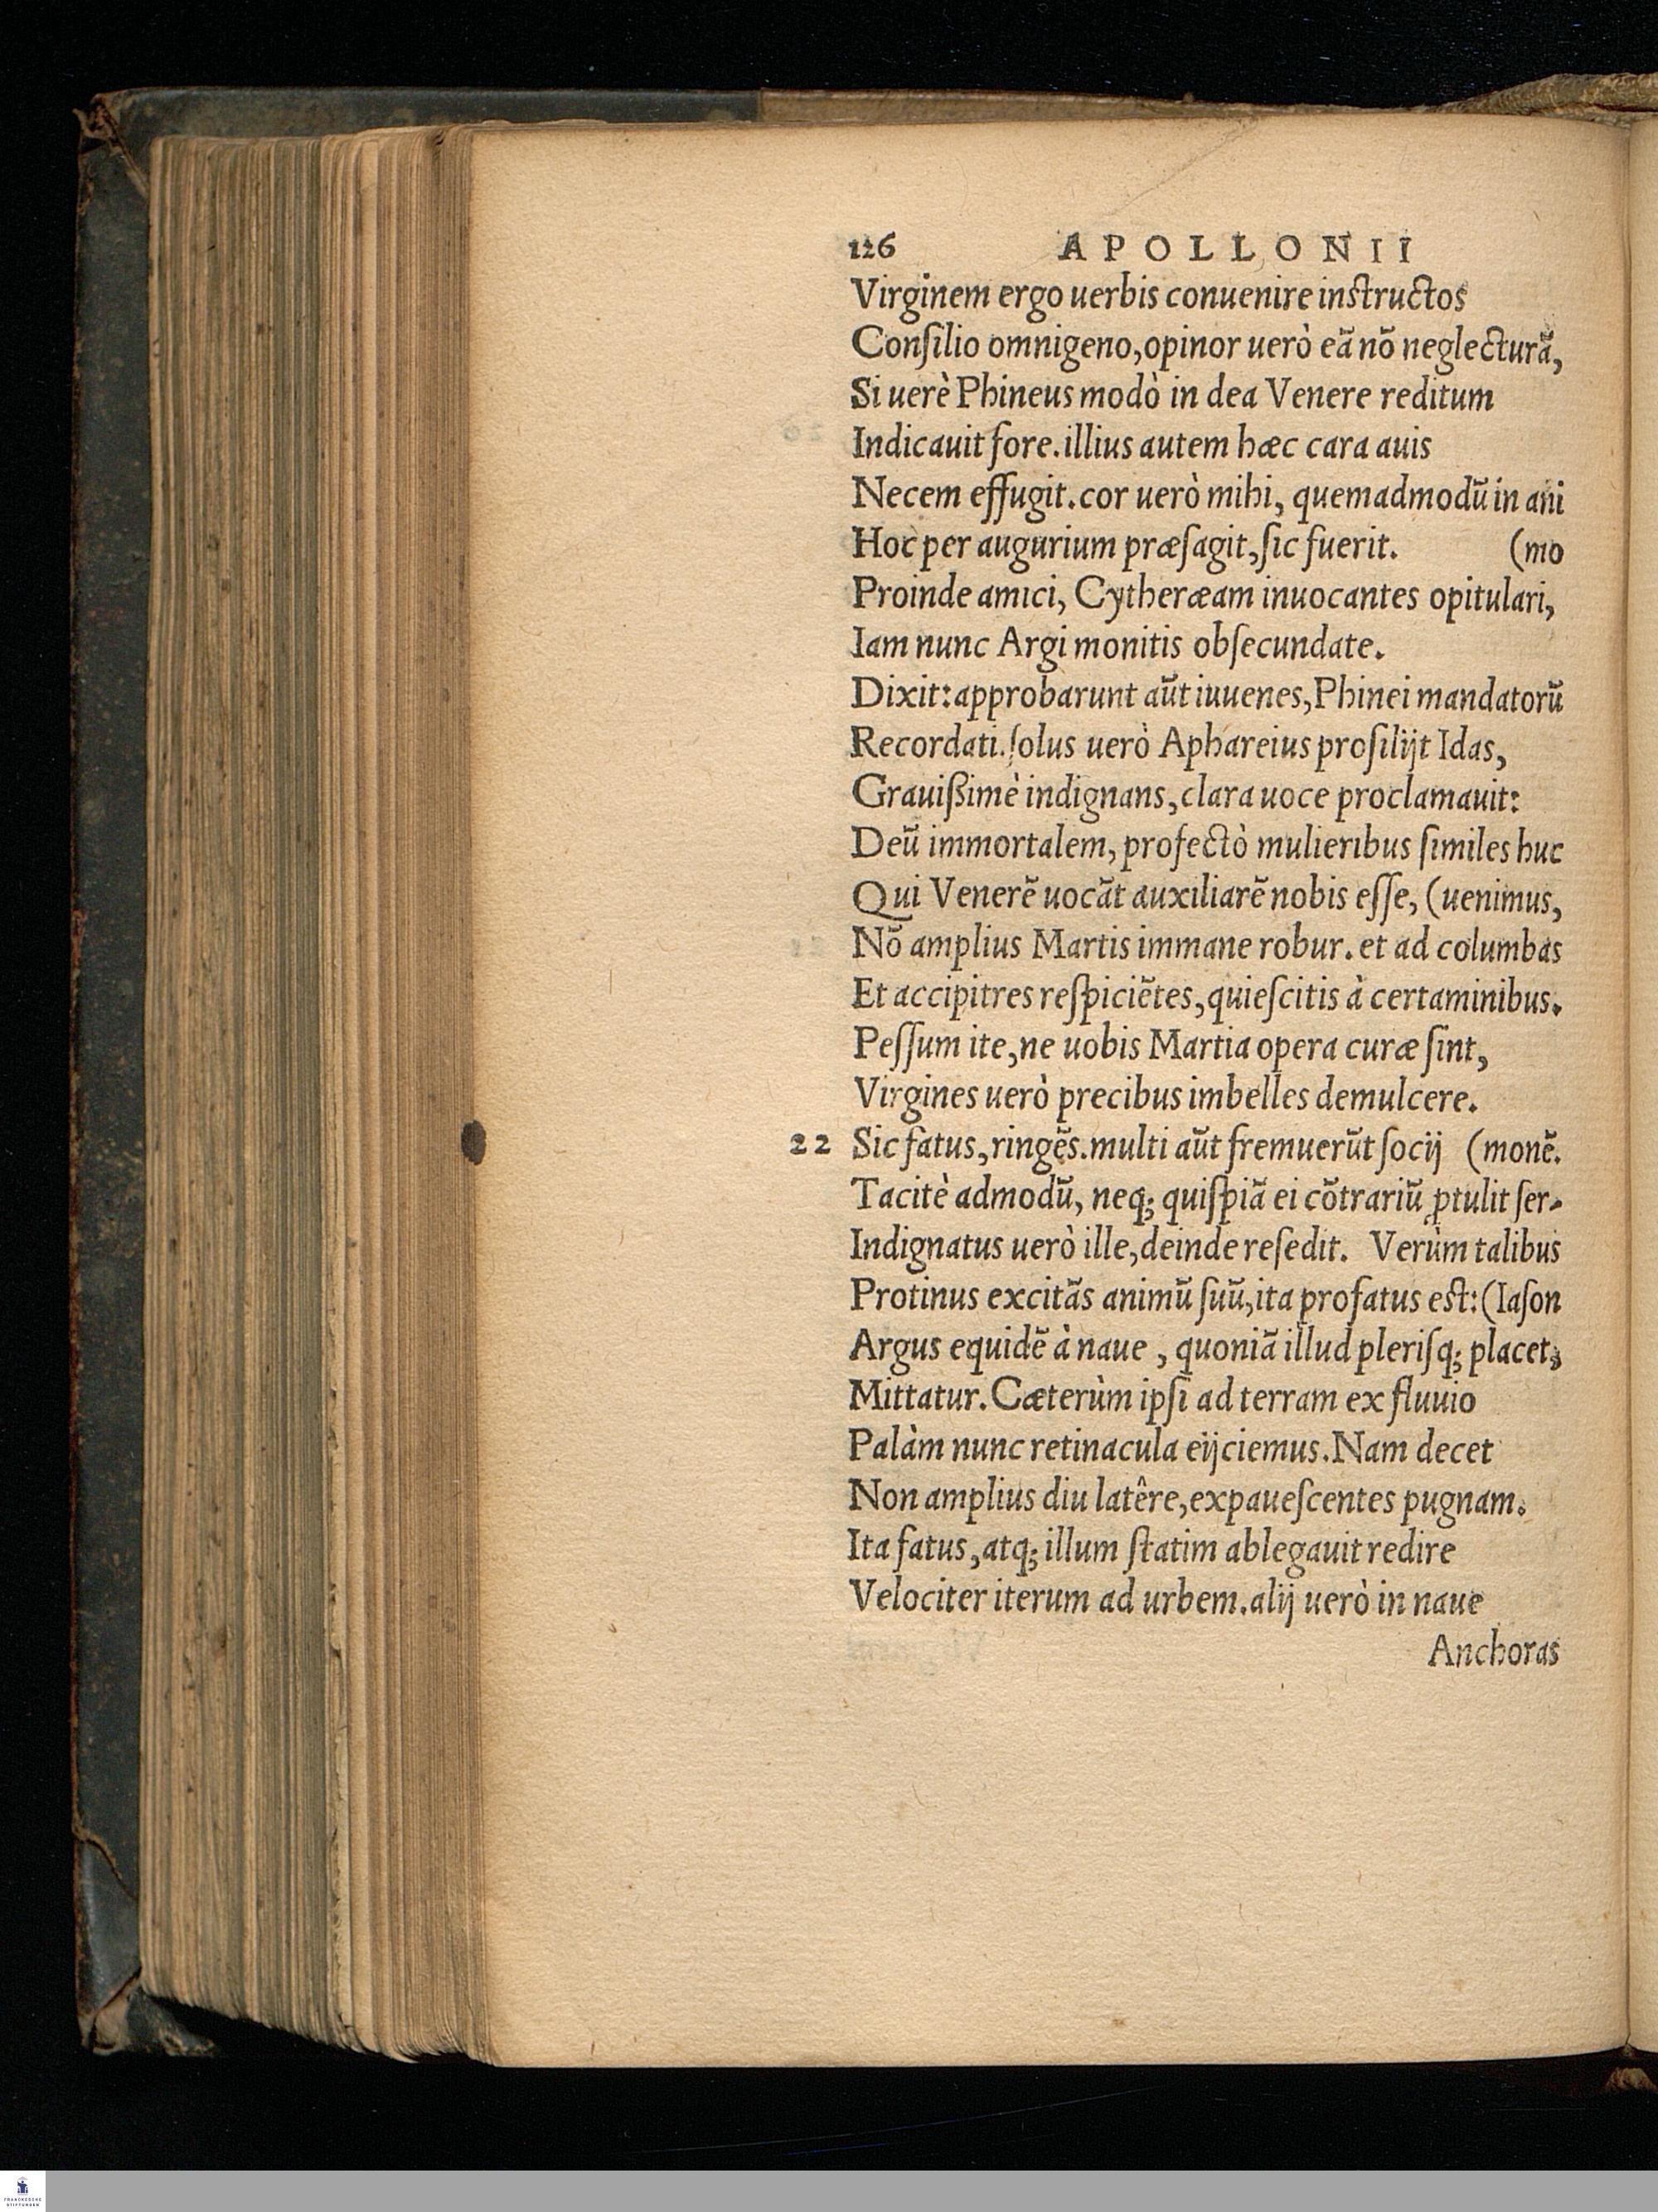 126 APOLLONII
Virginem ergo uerbis conuenire instructos
Conſilio omnigeno, opinor uerò eã nõ neglecturã,
Si uerè Phineus modò in dea Venere reditum
Indicauit fore. illius autem hæc cara auis
Necem effugit. cor uerò mihi, quemadmodũ in ani
Hoc per augurium præſagit, ſic fuerit. (mo
Proinde amici, Cytheræam inuocantes opitulari,
Iam nunc Argi monitis obſecundate.
Dixit: approbarunt aũt iuuenes, Phinei mandatorũ
Recordati. ſolus uerò Aphareius proſilijt Idas,
Grauißimè indignans, clara uoce proclamauit:
Deũ immortalem, profectò mulieribus ſimiles huc
Qui Venerẽ uocãt auxiliarẽ nobis eſſe, (uenimus,
Nõ amplius Martis immane robur. et ad columbas
Et accipitres reſpiciẽtes, quieſcitis à certaminibus.
Peſſum ite, ne uobis Martia opera curæ ſint,
Virgines uerò precibus imbelles demulcere.
22 Sic fatus, ringẽs. multi aũt fremuerũt ſocij (monẽ.
Tacitè admodũ, neq; quiſpiã ei cõtrariũ ꝓtulit ſer-
Indignatus uerò ille, deinde reſedit. Verùm talibus
Protinus excitãs animũ ſuũ, ita profatus est: (Iaſon
Argus equidẽ à naue, quoniã illud pleriſq; placet,
Mittatur. Cæterùm ipſi ad terram ex fluuio
Palàm nunc retinacula eijciemus. Nam decet
Non amplius diu latêre, expaueſcentes pugnam.
Ita fatus, atq; illum ſtatim ablegauit redire
Velociter iterum ad urbem. alij uerò in naue
Anchoras
FRANCKESCHE
STIFTUNGEN